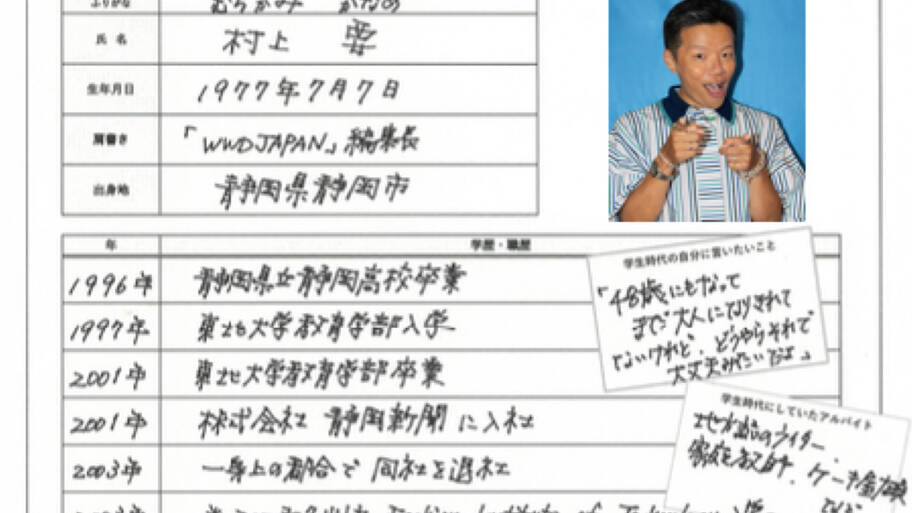 ふりがな
むらかみ かなめ
氏 名
村上 要
生年月日
1977年7月7日
肩書き
「WWDJAPAN」編集長
出身地
静岡県静岡市
年
学歴・職歴
1996年
静岡県立静岡高校卒業
1997年
東北大学教育学部入学
2001年
東北大学教育学部卒業
2001年
株式会社 静岡新聞に入社
2003年
一身上の都合で 同社を退社
学生時代の自分に言いたいこと
「48歳にもなって
まだ大人になりきれて
ないけれど、どうやらそれで
大丈夫みたいだよ」
学生時代にしていたアルバイト
地方誌のライター、
家庭教師、ケーキ